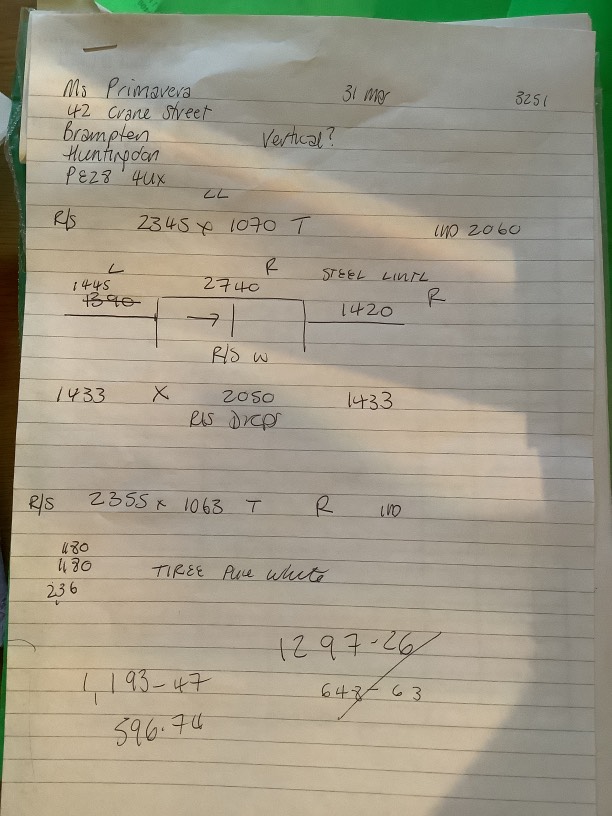 Ms Primavera 31 Mar 3251
42 Crane Street
Brampton Vertical?
Huntingdon
PE28 4UX
LL
R/S 2345 x 1070 T IND 2060
L R STEEL LINTL
1445 2740 R
1390 → 1420
R/S W
1433 X 2050 1433
R/S Drops
R/S 2355 x 1063 T R IND
1180
1180 TIREE Pure White
236
1297-26
1,193-47 648-63
596.74